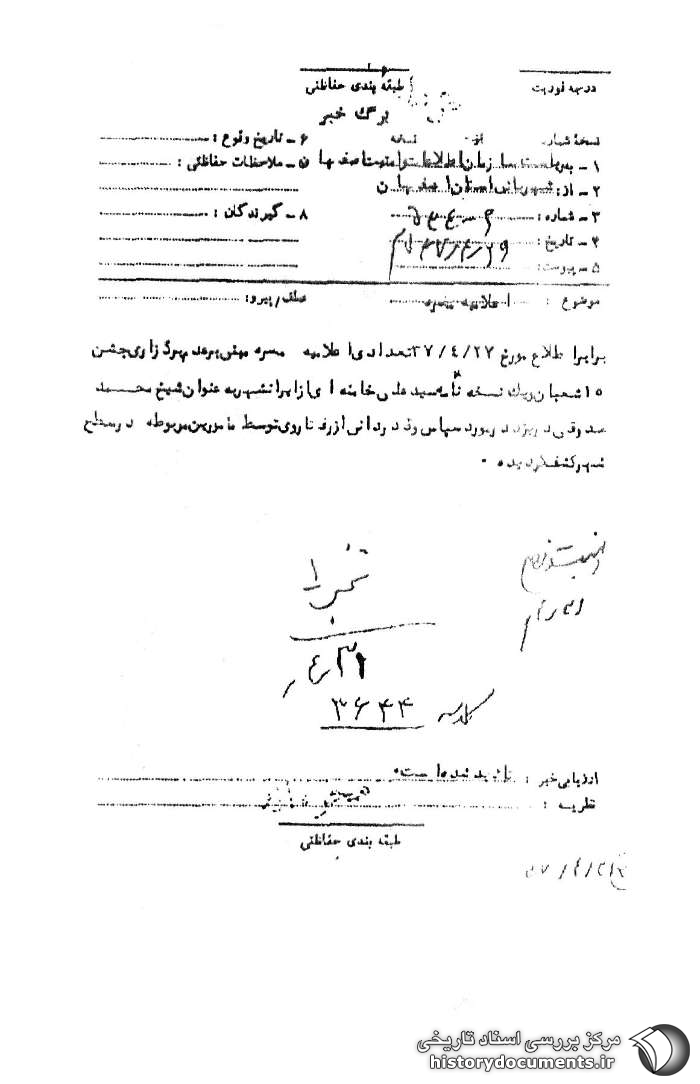 درجه فوریت
طبقه بندی حفاظتی
برگ خبر
نسخه شماره نسخه
۱ - به ریاست سازمان اطلاعات و امنیت اصفهان
۲ - از: شهربانی استان اصفهان
۳ - شماره:
۴ - تاریخ: ۳۷/۴/۲۹
۵ - پیوست:
۶ - تاریخ وقوع:
ن - ملاحظات حفاظتی:
۸ - گیرندگان:
موضوع: اعلامیه مضره
عطف/پیرو:
برابر اطلاع مورخ ۳۷/۴/۲۷ تعدادی اعلامیه مضره مبنی بر عدم برگزاری جشن
۱۵ شعبان و یک نسخه نامه سید علی خامنه ای از ایرانشهر به عنوان شیخ محمد
صدوقی در یزد در مورد سپاس و قدردانی از رفتار وی توسط مامورین مربوطه در سطح
شهر کشف گردیده.
۴/۳۱
کلاسه ۳۶۴۴
ارزیابی خبر: تائید شده است.
نظریه:
طبقه بندی حفاظتی
مرکز بررسی اسناد تاریخی
historydocuments.ir